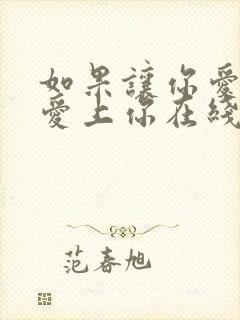 如果讓你愛
愛上你在綫
范春旭